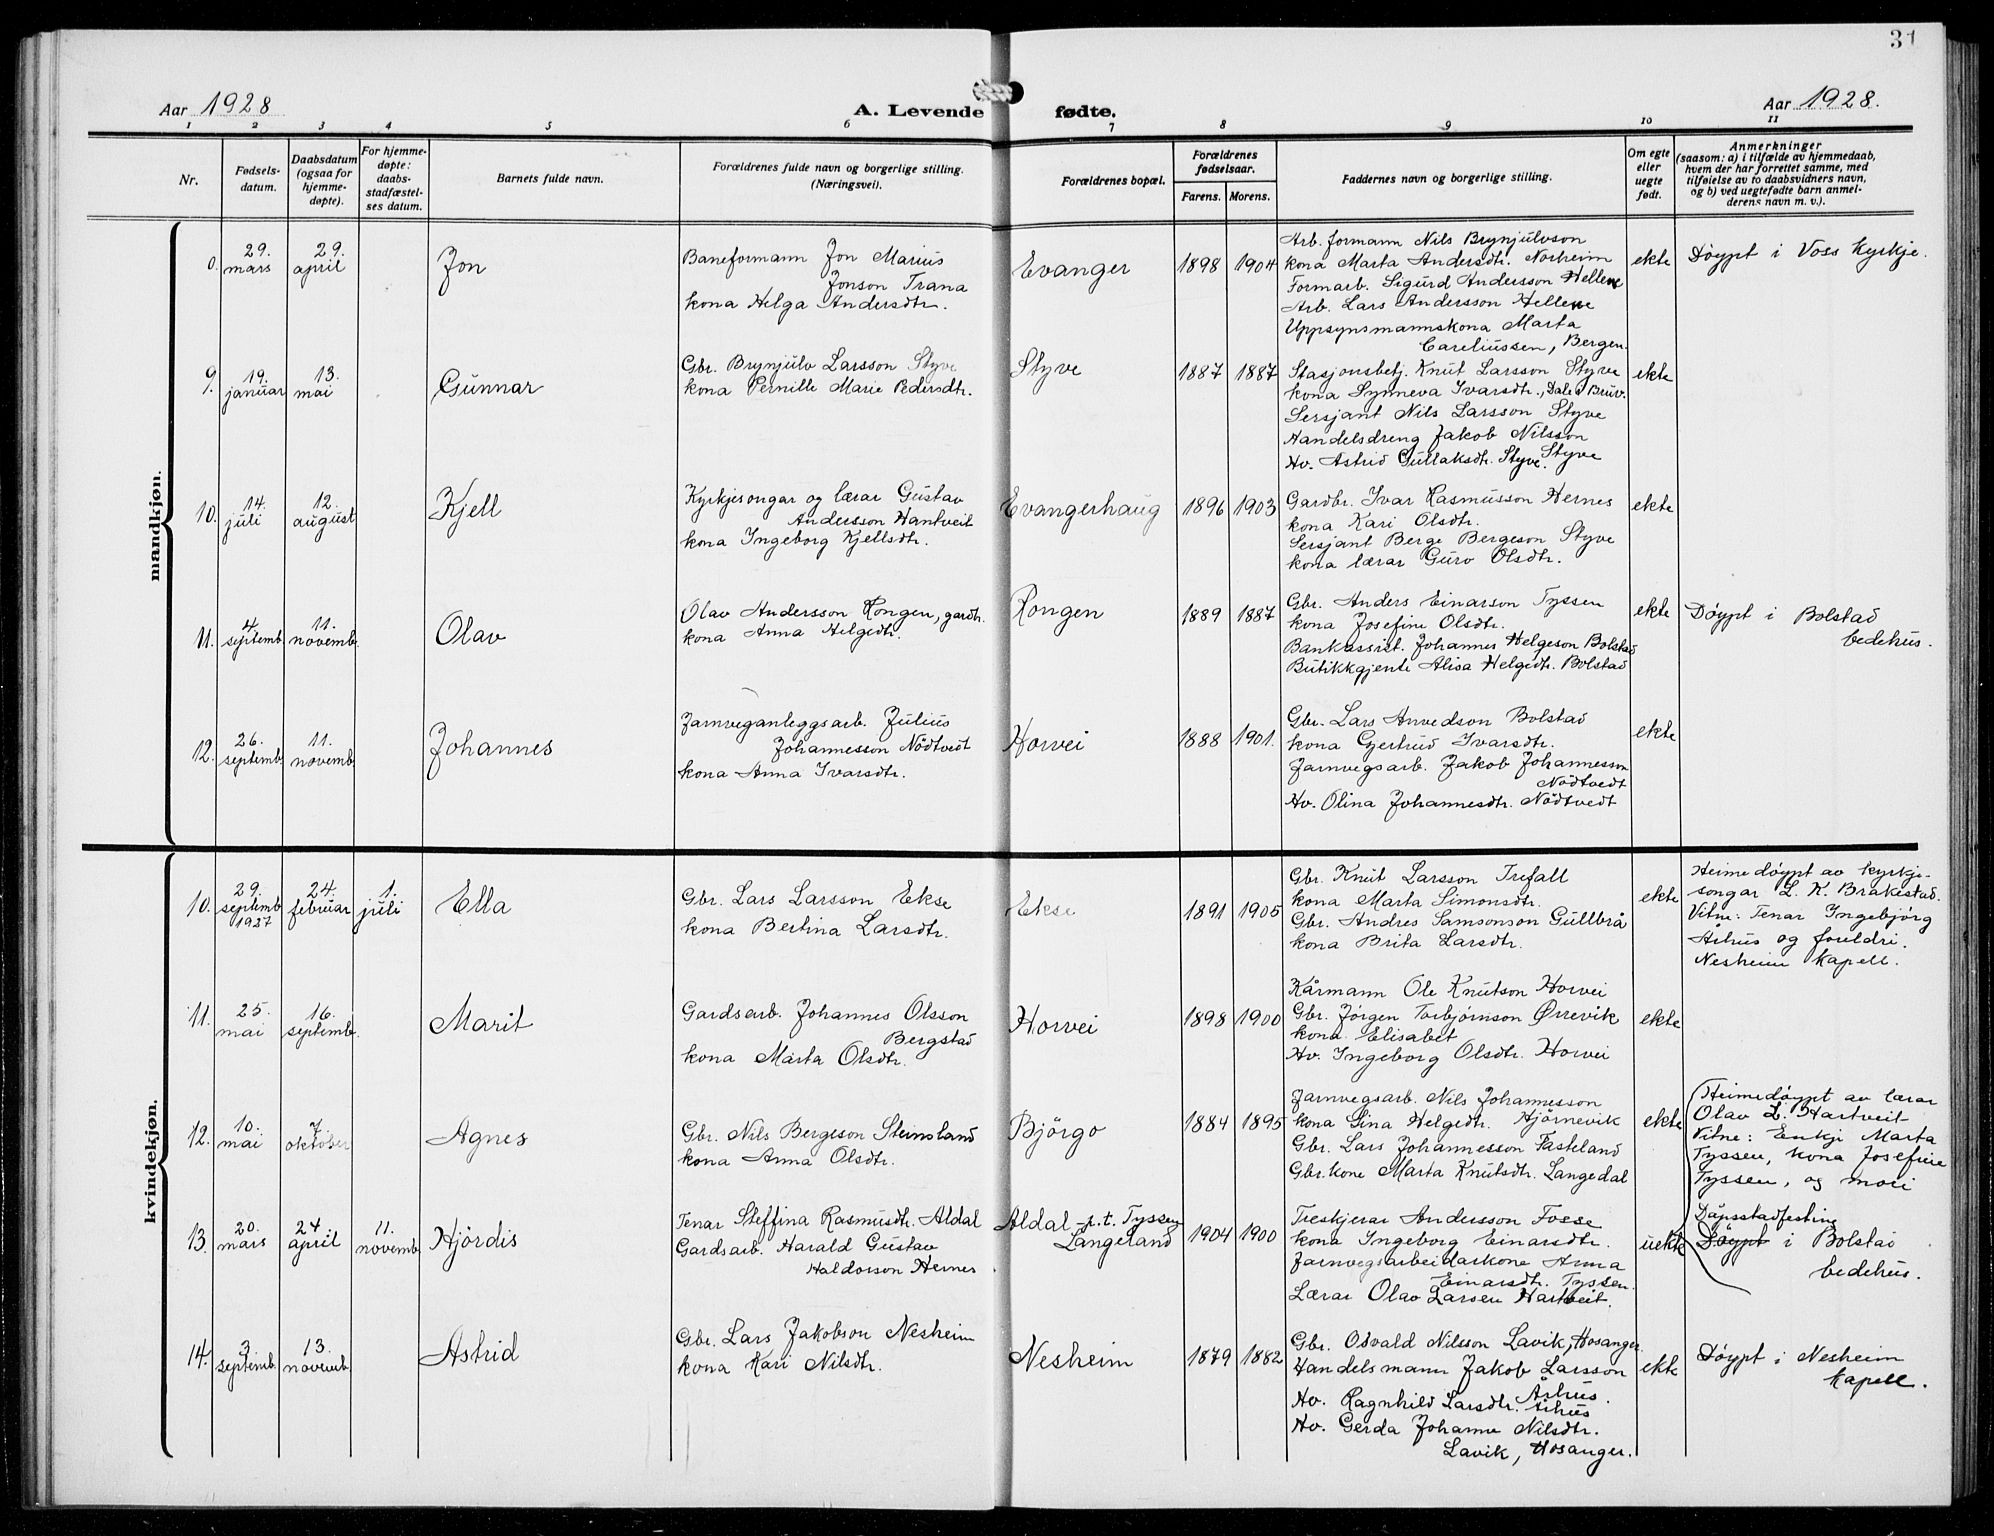 31
Aar 1928
A. Levende fødte.
Aar 1928.
1 2 3 4 5 6 7 8 9 10 11
Nr.
Fødsels-
datum.
Daabsdatum
(ogsaa for
hjemme-
døpte).
For hjemme-
døpte:
daabs-
stadfæstel-
ses datum.
Barnets fulde navn.
Forældrenes fulde navn og borgerlige stilling.
(Næringsvei).
Forældrenes bopæl.
Forældrenes
fødselsaar.
Farens. Morens.
Faddernes navn og borgerlige stilling.
Om egte
eller
uegte
født.
Anmerkninger
(saasom: a) i tilfælde av hjemmedaab,
hvem der har forrettet samme, med
tilføielse av to daabsvidners navn,
og b) ved uegtefødte barn anmel-
derens navn m. v.).
mandkjøn.
29.
mars
29.
april
Jon
Baneformann Jon Marius
Jonson Trana
kona Helga Andersdtr.
Evanger
1898 1904
Arb. formann Nils Brynjulvson
kona Marta Andersdtr. Norheim
Formarb. Sigurd Andersson Hellene
Arb. Lars Andersson Hellene
Uppsynsmannskona Marta
Careliussen, Bergen.
ekte
Döypt i Voss kyrkje.
9.
19.
januar
13.
mai
Gunnar
Gbr. Brynjulv Larsson Styve
kona Pernille Marie Pedersdtr.
Styve
1887 1887
Stasjonsbetj. Knut Larsson Styve
kona Synneva Ivarsdtr., Dale i Bruv.
Sersjant Nils Larsson Styve
Handelsdreng Jakob Nilsson
Styve
Hv. Astrid Gullaksdtr. Styve.
ekte
10.
14.
juli
12.
august
Kjell
Kyrkjesongar og lærar Gustav
Andersson Hantveit
kona Ingeborg Kjellsdtr.
Evangerhaug
1896 1903
Gardbr. Ivar Rasmusson Hernes
kona Kari Olsdtr.
Sersjant Berge Bergeson Styve
kona lærar Guro Olsdtr.
ekte
11.
4.
septemb.
11.
novemb.
Olav
Olav Andersson Rongen, gardbr.
kona Anna Helgedtr.
Rongen
1889 1887
Gbr. Anders Einarson Tyssen
kona Josefine Olsdtr.
Bankassist. Johannes Helgeson Bolstad
Butikkgjente Alisa Helgedtr. Bolstad
ekte
Döypt i Bolstad
bedehus.
12.
26.
septemb.
11.
novemb.
Johannes
Jarnveganleggsarb. Julius
Johannesson Nödtvedt
kona Anna Ivarsdtr.
Horvei
1888 1901.
Gbr. Lars Anvedson Bolstad
kona Gjertrud Ivarsdtr.
Jarnvegsarb. Jakob Johannesson
Nödtvedt
Hv. Olina Johannesdtr. Nödtvedt
ekte
kvindekjøn.
10.
29.
septemb.
1927
24.
februar
1.
juli
Ella
Gbr. Lars Larsson Ekse
kona Bertina Larsdtr.
Ekse
1891 1905
Gbr. Knut Larsson Trefall
kona Marta Simonsdtr.
Gbr. Andres Samsonson Gullbrå
kona Brita Larsdtr.
ekte
Heimedöypt av kyrkje-
songar L. K. Brakestad.
Vitne: Tenar Ingebjörg
Århus og foreldri.
Nesheim kapell.
11.
25.
mai
16.
septemb.
Marit
Gardsarb. Johannes Olsson
Bergstad
kona Marta Olsdtr.
Horvei
1898 1900
Kårmann Ole Knutson Horvei
Gbr. Jørgen Torbjørnson Ørrevik
kona Elisabet
Hv. Ingeborg Olsdtr. Horvei
ekte
12.
10.
mai
7.
oktober
Agnes
Gbr. Nils Bergeson Steinsland
kona Anna Olsdtr.
Bjørgo
1884 1895
Jarnvegsarb. Nils Johannesson
kona Sina Helgedtr. Hjörnevik
Gbr. Lars Johannesson Fasteland
Gbr.kone Marta Knutsdtr. Langedal
ekte
Heimedöypt av lærar
Olav L. Hartveit
Vitne: Enkje Marta
Tyssen, kona Josefine
Tyssen, og mori
13.
20.
mars
24
april
11.
novemb.
Hjördis
Tenar Steffina Rasmusdtr. Aldal
Gardsarb. Harald Gustav
Haldorson Hernes
Aldal p.t. Tyssen
Langeland
1904 1900
Treskjerar Andersson Fosse
kona Ingeborg Einarsdtr.
Jarnvegsarbeidarkone Anna
Einarsdtr. Tyssen.
Lærar Olav Larsen Hartveit.
uekte
Dåpsstadfesting
Döypt i Bolstad
bedehus.
14.
3.
septemb.
13.
novemb.
Astrid
Gbr. Lars Jakobson Nesheim
kona Kari Nilsdtr.
Nesheim
1879 1882
Gbr. Osvald Nilsson Lavik, Hosanger
Handelsmann Jakob Larsson
Århus.
Hv. Ragnhild Larsdtr. Århus
Hv. Gerda Johanne Nilsdtr.
Lavik, Hosanger.
ekte
Döypt i Nesheim
kapell.